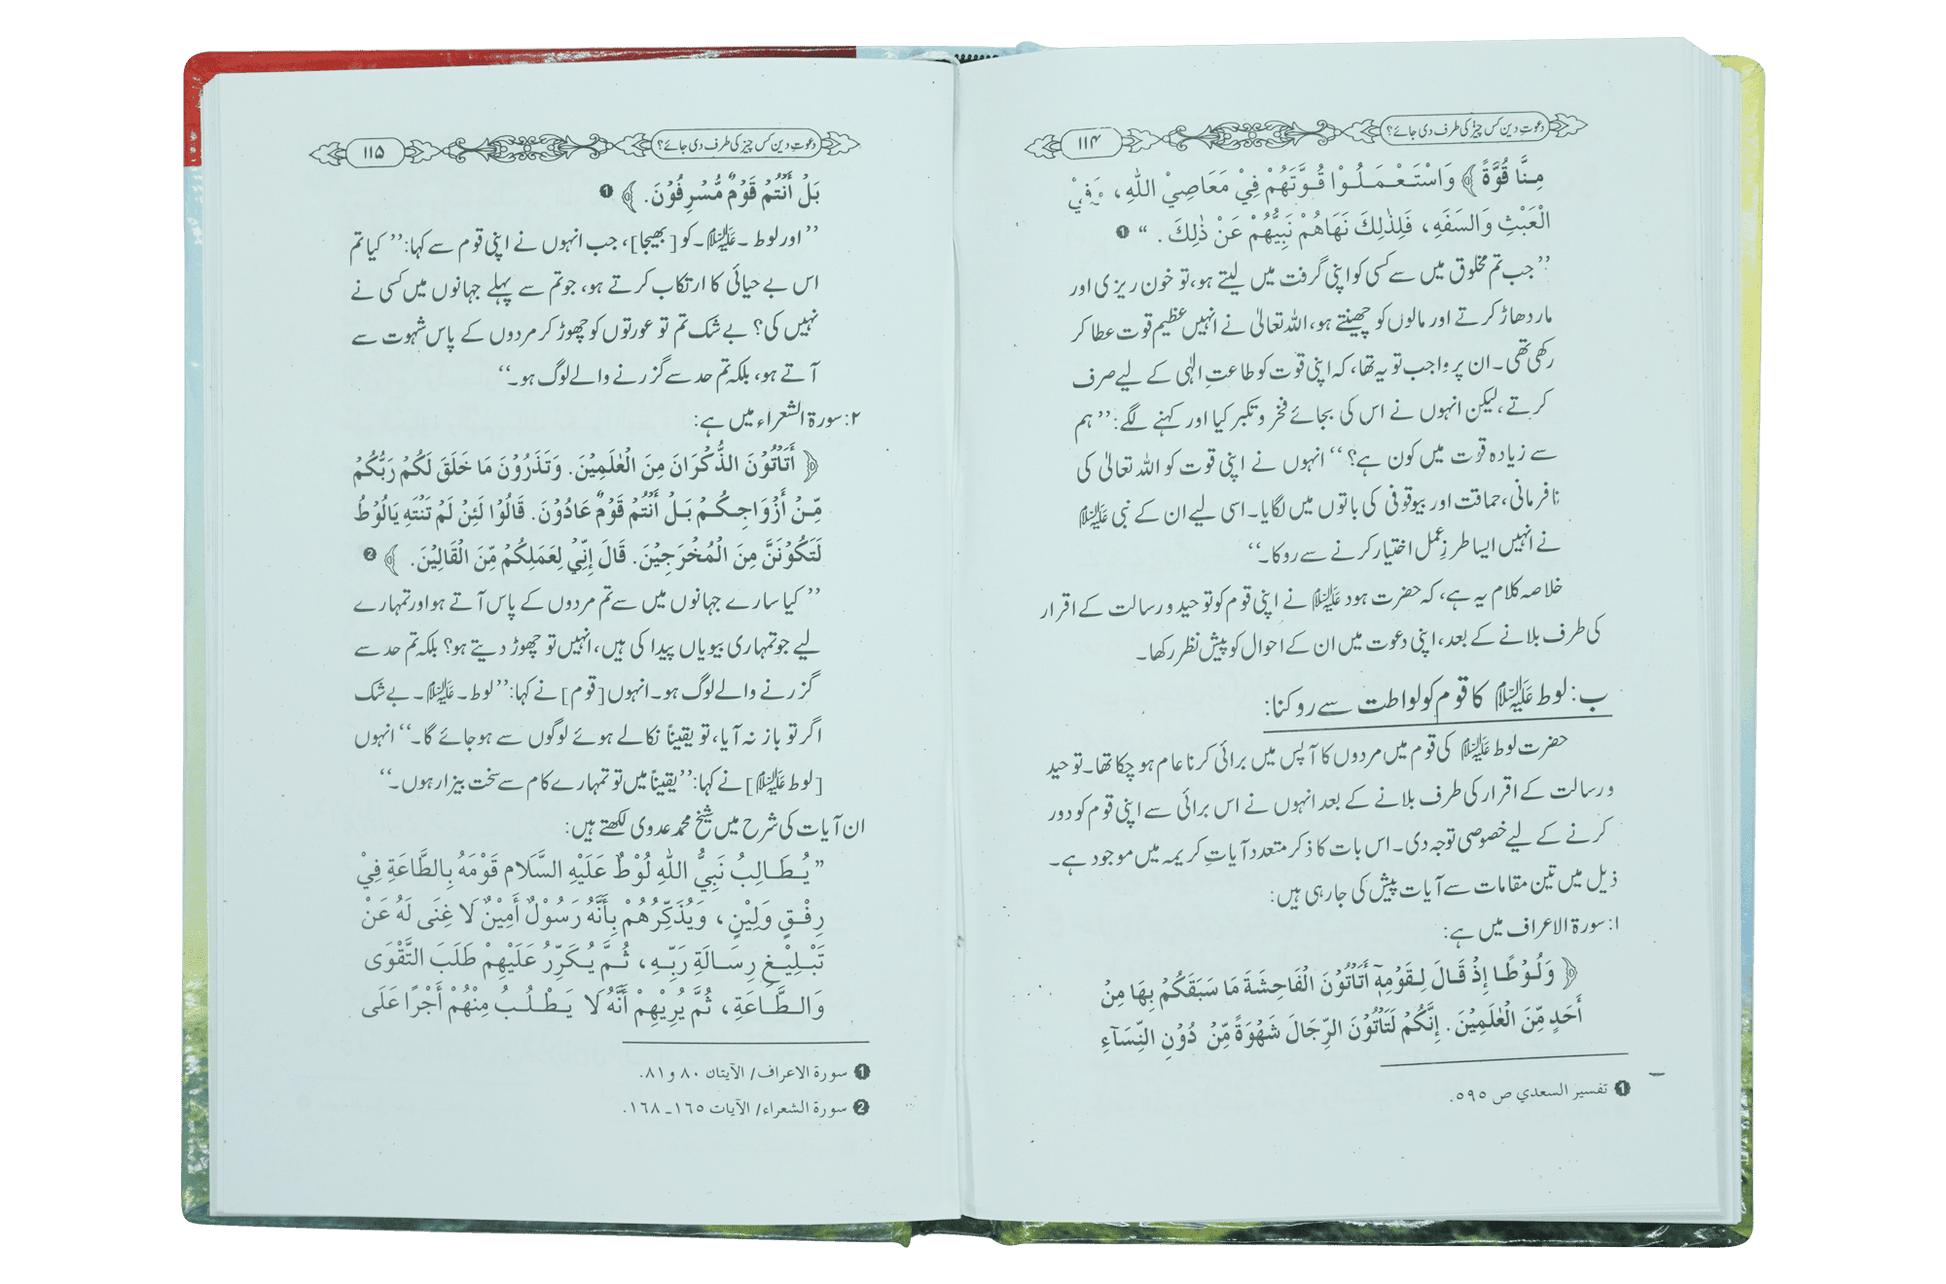 دعوتِ دین کس چیز کی طرف دی جائے؟ ۱۱۴
مِنَّا قُوَّةً﴾ وَاسْتَعْمَلُوْا قُوَّتَهُمْ فِيْ مَعَاصِيْ اللهِ، وَفِيْ
الْعَبْثِ وَالسَفَهِ، فَلِذٰلِكَ نَهَاهُمْ نَبِيُّهُمْ عَنْ ذٰلِكَ. “ ❶
’’جب تم مخلوق میں سے کسی کو اپنی گرفت میں لیتے ہو، تو خون ریزی اور
مار دھاڑ کرتے اور مالوں کو چھینتے ہو، اللہ تعالیٰ نے انہیں عظیم قوت عطا کر
رکھی تھی۔ ان پر واجب تو یہ تھا، کہ اپنی قوت کو طاعتِ الٰہی کے لیے صرف
کرتے، لیکن انہوں نے اس کی بجائے فخر و تکبر کیا اور کہنے لگے: ’’ہم
سے زیادہ قوت میں کون ہے؟‘‘ انہوں نے اپنی قوت کو اللہ تعالیٰ کی
نافرمانی، حماقت اور بیوقوفی کی باتوں میں لگایا۔ اسی لیے ان کے نبی علیہ السلام
نے انہیں ایسا طرزِ عمل اختیار کرنے سے روکا۔‘‘
خلاصہ کلام یہ ہے، کہ حضرت ہود علیہ السلام نے اپنی قوم کو توحید و رسالت کے اقرار
کی طرف بلانے کے بعد، اپنی دعوت میں ان کے احوال کو پیش نظر رکھا۔
ب: لوط علیہ السلام کا قوم کو لواطت سے روکنا:
حضرت لوط علیہ السلام کی قوم میں مردوں کا آپس میں برائی کرنا عام ہو چکا تھا۔ توحید
و رسالت کے اقرار کی طرف بلانے کے بعد انہوں نے اس برائی سے اپنی قوم کو دور
کرنے کے لیے خصوصی توجہ دی۔ اس بات کا ذکر متعدد آیاتِ کریمہ میں موجود ہے۔
ذیل میں تین مقامات سے آیات پیش کی جا رہی ہیں:
۱: سورۃ الاعراف میں ہے:
﴿وَلُوْطًا إِذْ قَالَ لِقَوْمِهٖٓ أَتَاْتُوْنَ الْفَاحِشَةَ مَا سَبَقَكُمْ بِهَا مِنْ
أَحَدٍ مِّنَ الْعٰلَمِيْنَ. إِنَّكُمْ لَتَاْتُوْنَ الرِّجَالَ شَهْوَةً مِّنْ دُوْنِ النِّسَآءِ
❶ تفسير السعدي ص ٥٩٥.
دعوتِ دین کس چیز کی طرف دی جائے؟ ۱۱۵
بَلْ أَنْتُمْ قَوْمٌ مُّسْرِفُوْنَ.﴾ ❶
’’اور لوط ۔ علیہ السلام ۔ کو [بھیجا]، جب انہوں نے اپنی قوم سے کہا: ’’کیا تم
اس بے حیائی کا ارتکاب کرتے ہو، جو تم سے پہلے جہانوں میں کسی نے
نہیں کی؟ بے شک تم تو عورتوں کو چھوڑ کر مردوں کے پاس شہوت سے
آتے ہو، بلکہ تم حد سے گزرنے والے لوگ ہو۔‘‘
۲: سورۃ الشعراء میں ہے:
﴿أَتَاْتُوْنَ الذُّكْرَانَ مِنَ الْعٰلَمِيْنَ. وَتَذَرُوْنَ مَا خَلَقَ لَكُمْ رَبُّكُمْ
مِّنْ أَزْوَاجِكُمْ بَلْ أَنْتُمْ قَوْمٌ عَادُوْنَ. قَالُوْا لَئِنْ لَمْ تَنْتَهِ يَالُوْطُ
لَتَكُوْنَنَّ مِنَ الْمُخْرَجِيْنَ. قَالَ إِنِّيْ لِعَمَلِكُمْ مِّنَ الْقَالِيْنَ.﴾ ❷
’’کیا سارے جہانوں میں سے تم مردوں کے پاس آتے ہو اور تمہارے
لیے جو تمہاری بیویاں پیدا کی ہیں، انہیں تو چھوڑ دیتے ہو؟ بلکہ تم حد سے
گزرنے والے لوگ ہو۔ انہوں [قوم] نے کہا: ’’لوط ۔ علیہ السلام ۔ بے شک
اگر تو باز نہ آیا، تو یقیناً نکالے ہوئے لوگوں سے ہو جائے گا۔‘‘ انہوں
[لوط علیہ السلام] نے کہا: ’’یقیناً میں تو تمہارے کام سے سخت بیزار ہوں۔‘‘
ان آیات کی شرح میں شیخ محمد عدوی لکھتے ہیں:
”يُطَالِبُ نَبِيُّ اللهِ لُوْطٌ عَلَيْهِ السَّلَام قَوْمَهُ بِالطَّاعَةِ فِيْ
رِفْقٍ وَلِيْنٍ، وَيُذَكِّرُهُمْ بِأَنَّهُ رَسُوْلٌ أَمِيْنٌ لَا غِنَى لَهُ عَنْ
تَبْلِيْغِ رِسَالَةِ رَبِّهِ، ثُمَّ يُكَرِّرُ عَلَيْهِمْ طَلَبَ التَّقْوَى
وَالطَّاعَةِ، ثُمَّ يُرِيْهِمْ أَنَّهُ لَا يَطْلُبُ مِنْهُمْ أَجْرًا عَلَى
❶ سورة الاعراف/ الآيتان ٨٠ و٨١.
❷ سورة الشعراء/ الآيات ١٦٥ـ١٦٨.